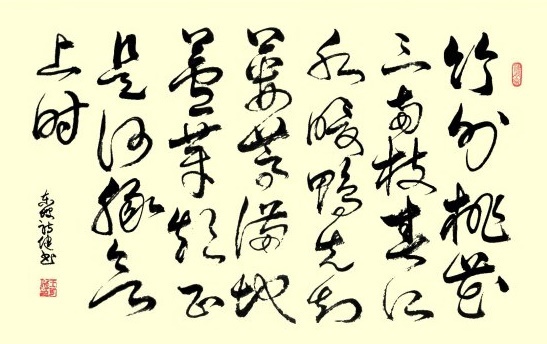 竹外桃花
三两枝春江
水暖鸭先知
蒌蒿满地
芦芽短正
是河豚欲
上时
东坡诗